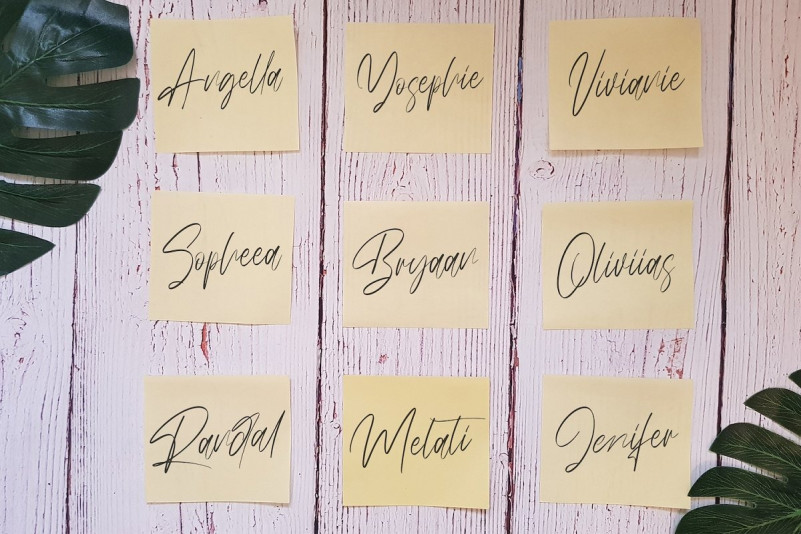 Angella
Yosephie
Vivianie
Sopheea
Bryaan
Oliviias
Randal
Melati
Jenifer